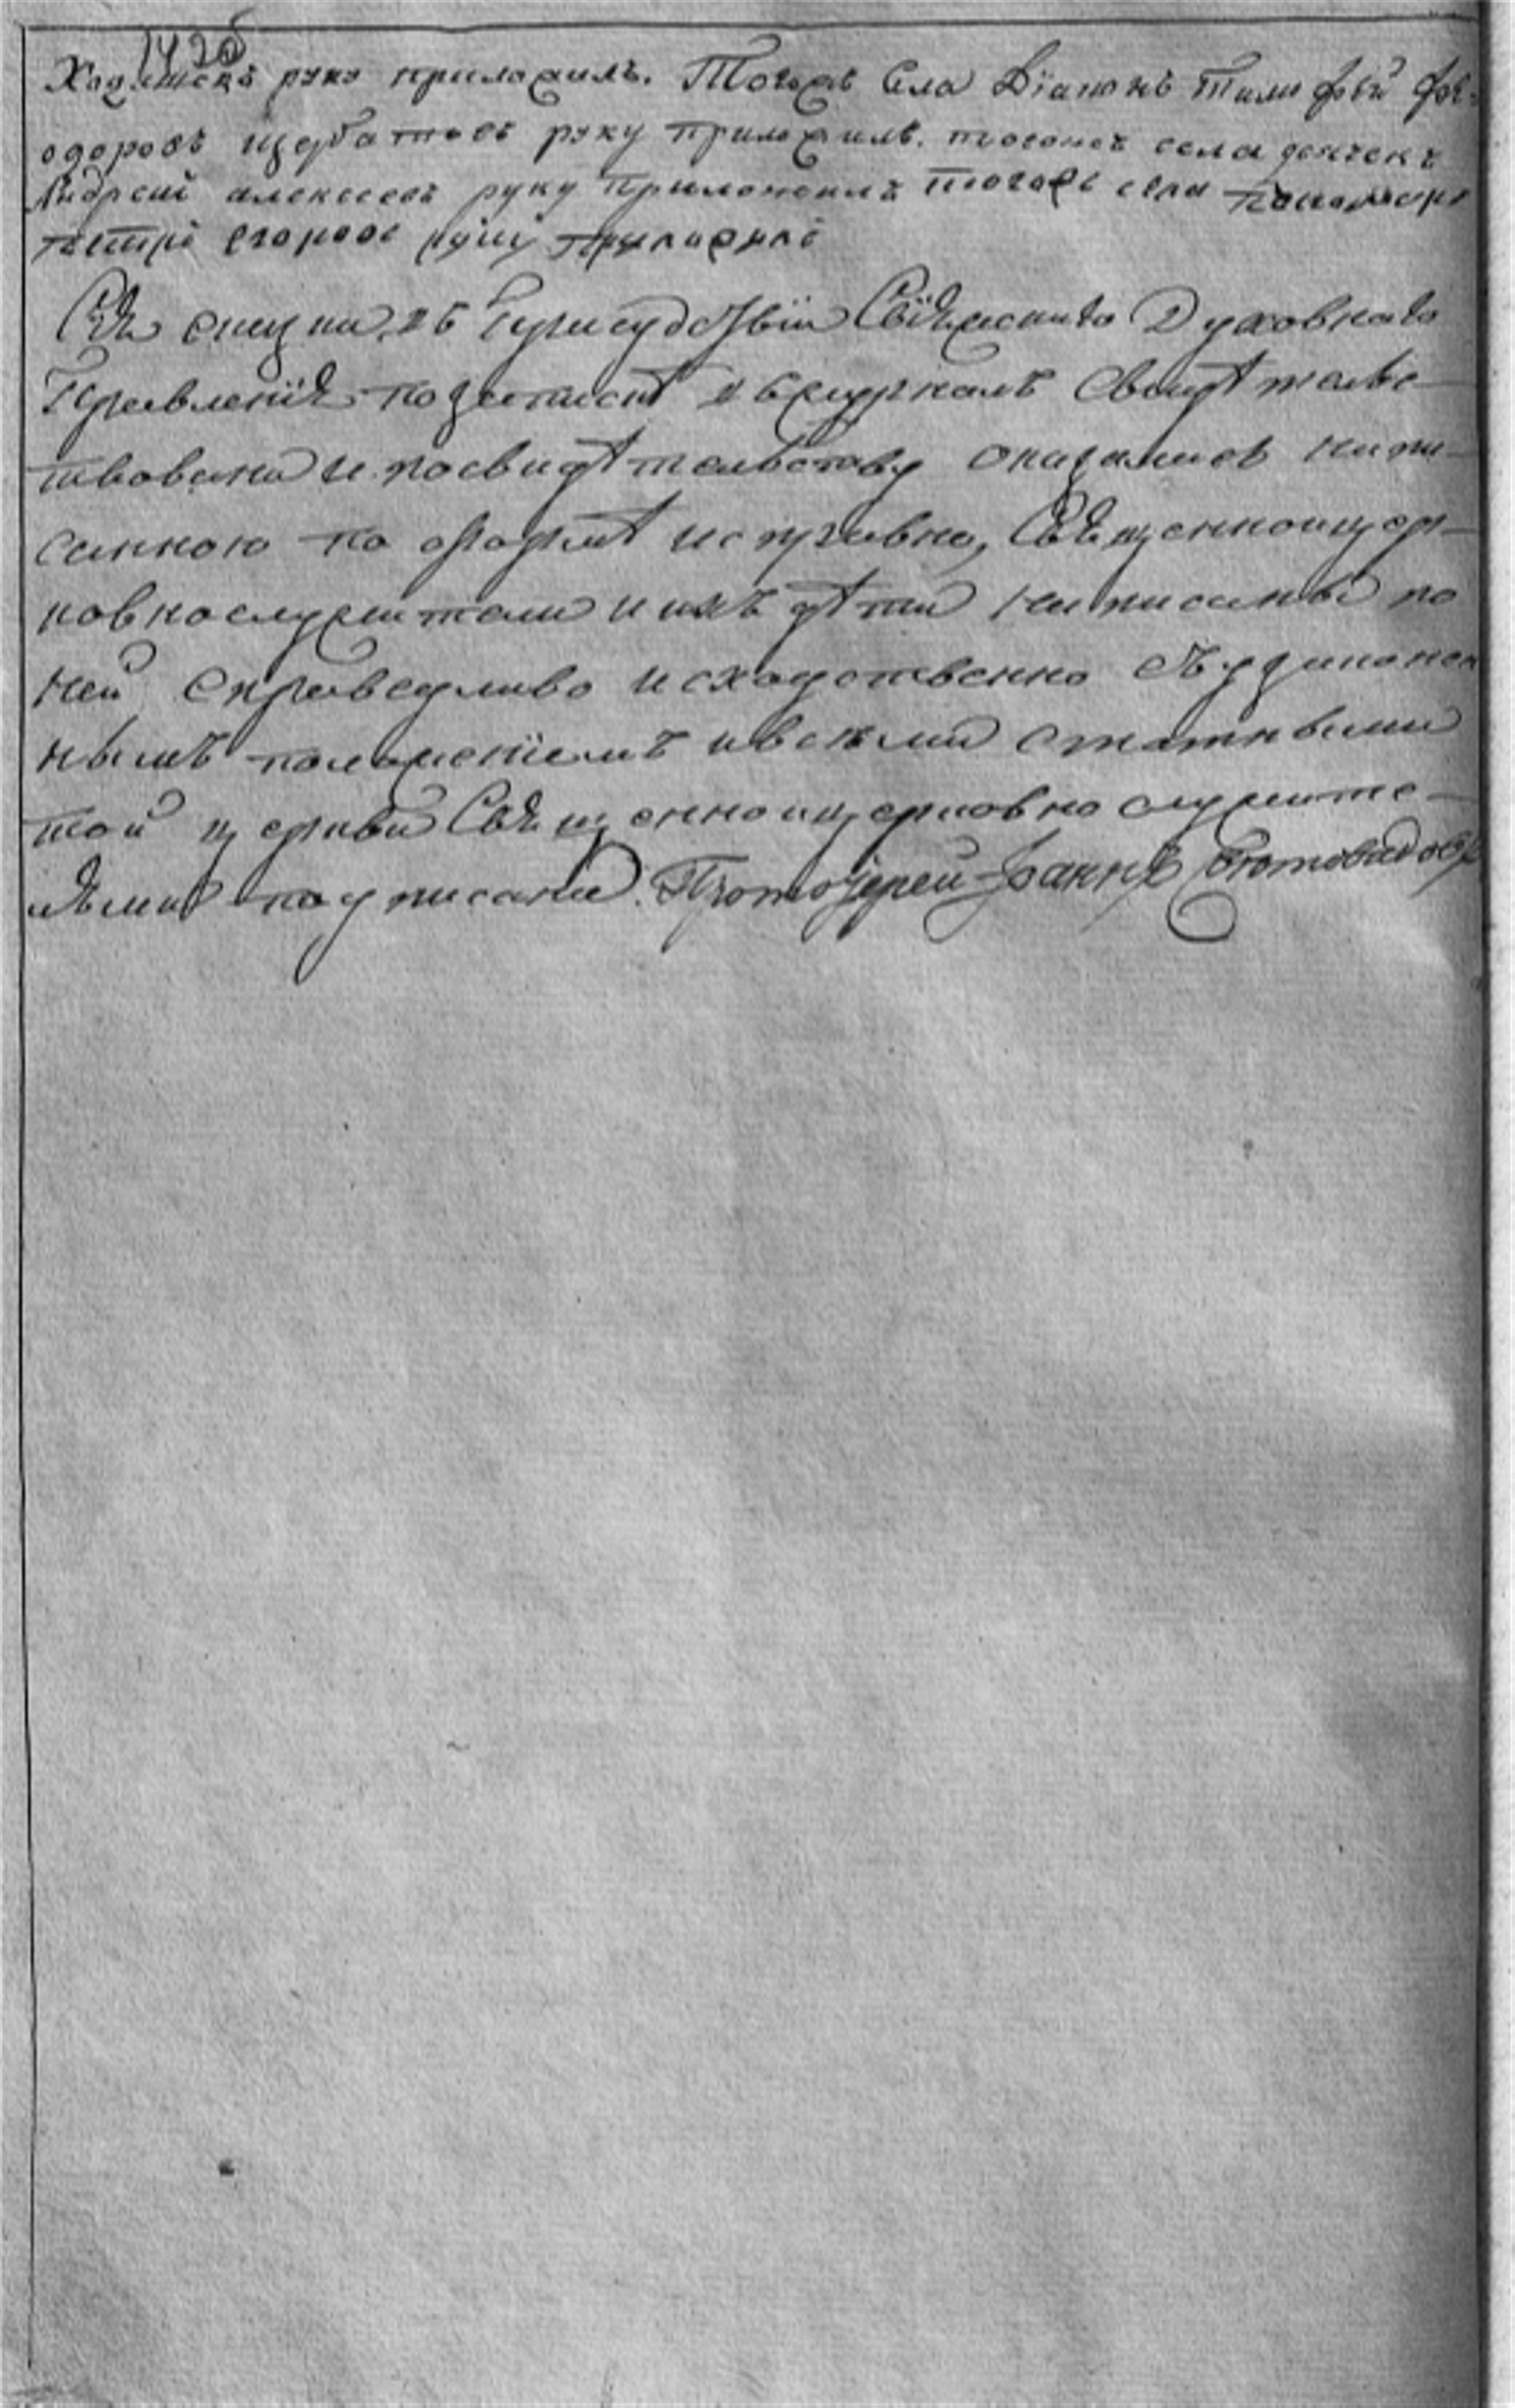 142об
руку приложилъ. Тогожъ села Дїаконъ Тимофѣй Фе-
одоровъ Щербатовъ руку приложилъ. тогожъ села дьячекъ
Андрей алексеевъ руку приложилъ тогожъ села пономарь
петръ егоровъ руку приложилъ
Сїя сказка въ присудствїи Свїяжскаго Духовнаго
Правленїя по записи въ журналъ свидѣтельс-
твована и по свидѣтельству оказалась напи-
санною по формѣ исправно, Священноцер-
ковнослужители и ихъ дѣти написаны по
ней справедливо и сходственно съ
нымъ положенїемъ и всѣми статными
той церкви Священноцерковнослужите-
лями подписана. Протоїерей Їоаннъ